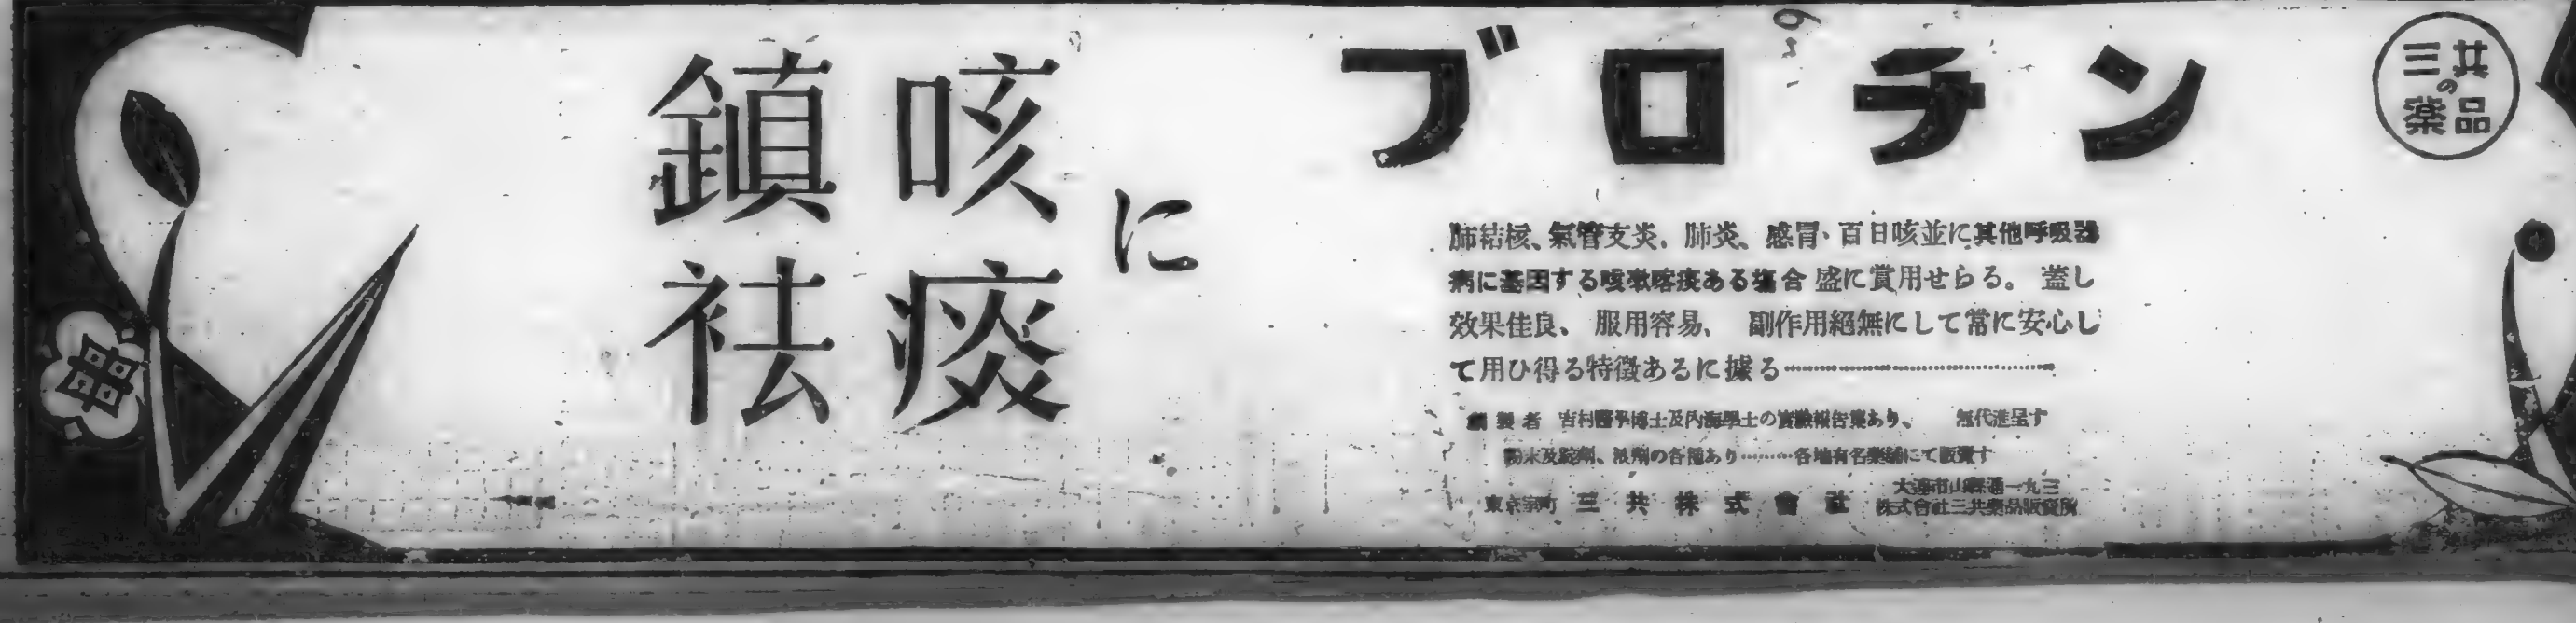 鎮咳
祛痰
に
ブロチン
三共
の
薬品
肺結核、氣管支炎、肺炎、感冒、百日咳並に其他呼吸器
病に基因する咳嗽喀痰ある塲合盛に賞用せらる。蓋し
效果佳良、服用容易、副作用絕無にして常に安心し
て用ひ得る特徵あるに據る
創製者 吉村醫學博士及內海學士の實驗報告集あり、 無代進呈す
粉末及錠劑、液劑の各種あり………各地有名藥舖にて販賣す
東京室町 三共株式會社
大連市山縣通一九三
株式會社三共藥品販賣所